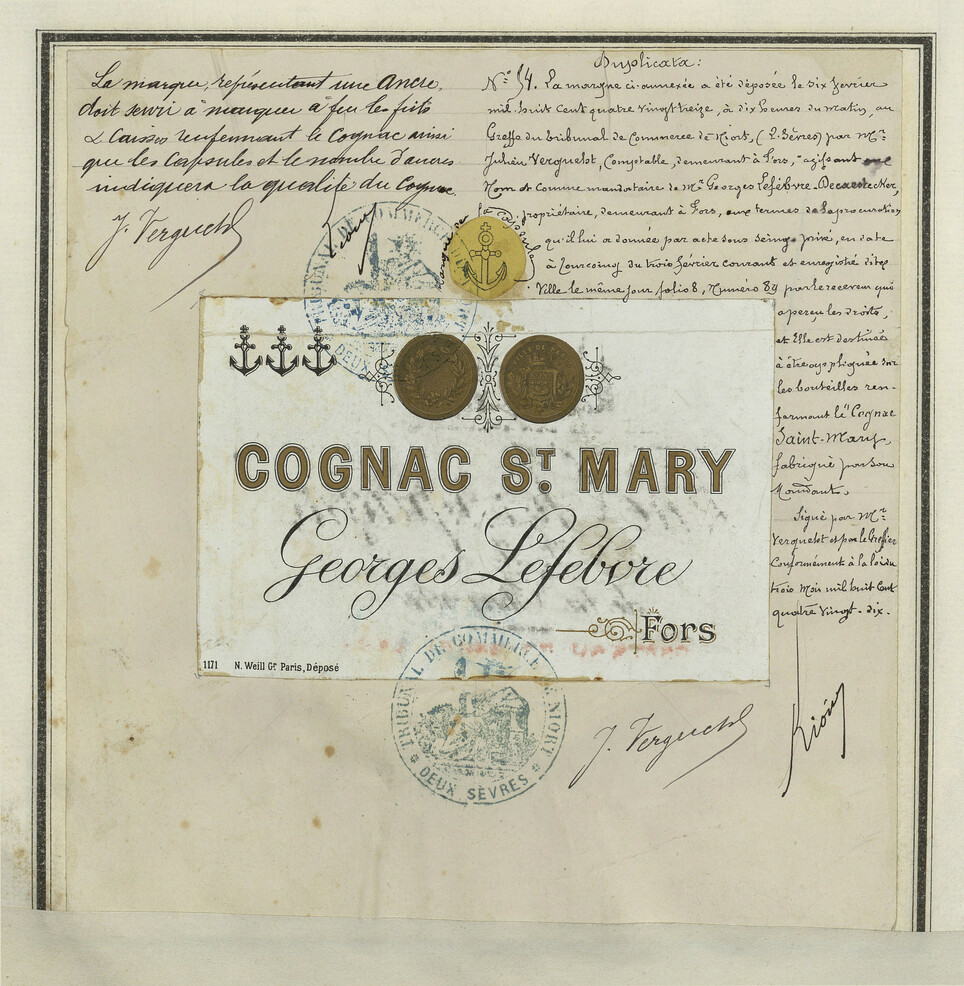 La marque, représentant une Ancre,
doit servir à marquer à feu les fûts
& Caisses renfermant le Cognac ainsi
que les Capsules et le nombre d'ancres
indiquera la qualité du Cognac
J. Verguelst
Duplicata :
N° 54. La marque ci-annexée a été déposée le six février
mil huit Cent quatre vingt treize, à dix heures du Matin, au
Greffe du tribunal de Commerce de Niort, (2. Sèvres) par Mr
Julien Verguelst, Comptable, demeurant à Fors, agissant au
Nom et Comme mandataire de Mr Georges Lefebvre-
propriétaire, demeurant à Fors, aux termes de la procuration
qu'il lui a donnée par acte sous seing privé, en date
à Tourcoing du trois février courant et enregistré dite
Ville le même jour, folio 8, Numéro 89 par le receveur qui
a perçu les droits,
et Elle est destinée
à être appliquée sur
les bouteilles ren-
fermant le "Cognac
Saint-Mary,
fabriqué par son
Mandant.
Signé par Mr
Verguelst et par le Greffier
Conformément à la loi du
trois Mai mil huit Cent
quatre vingt-dix.
marque de la Capsule
TRIBUNAL DE COMMERCE DE NIORT
DEUX SÈVRES
COGNAC ST. MARY
Georges Lefebvre
Fors
1171 N. Weill Gr Paris, Déposé
TRIBUNAL DE COMMERCE DE NIORT
DEUX SÈVRES
J. Verguelst